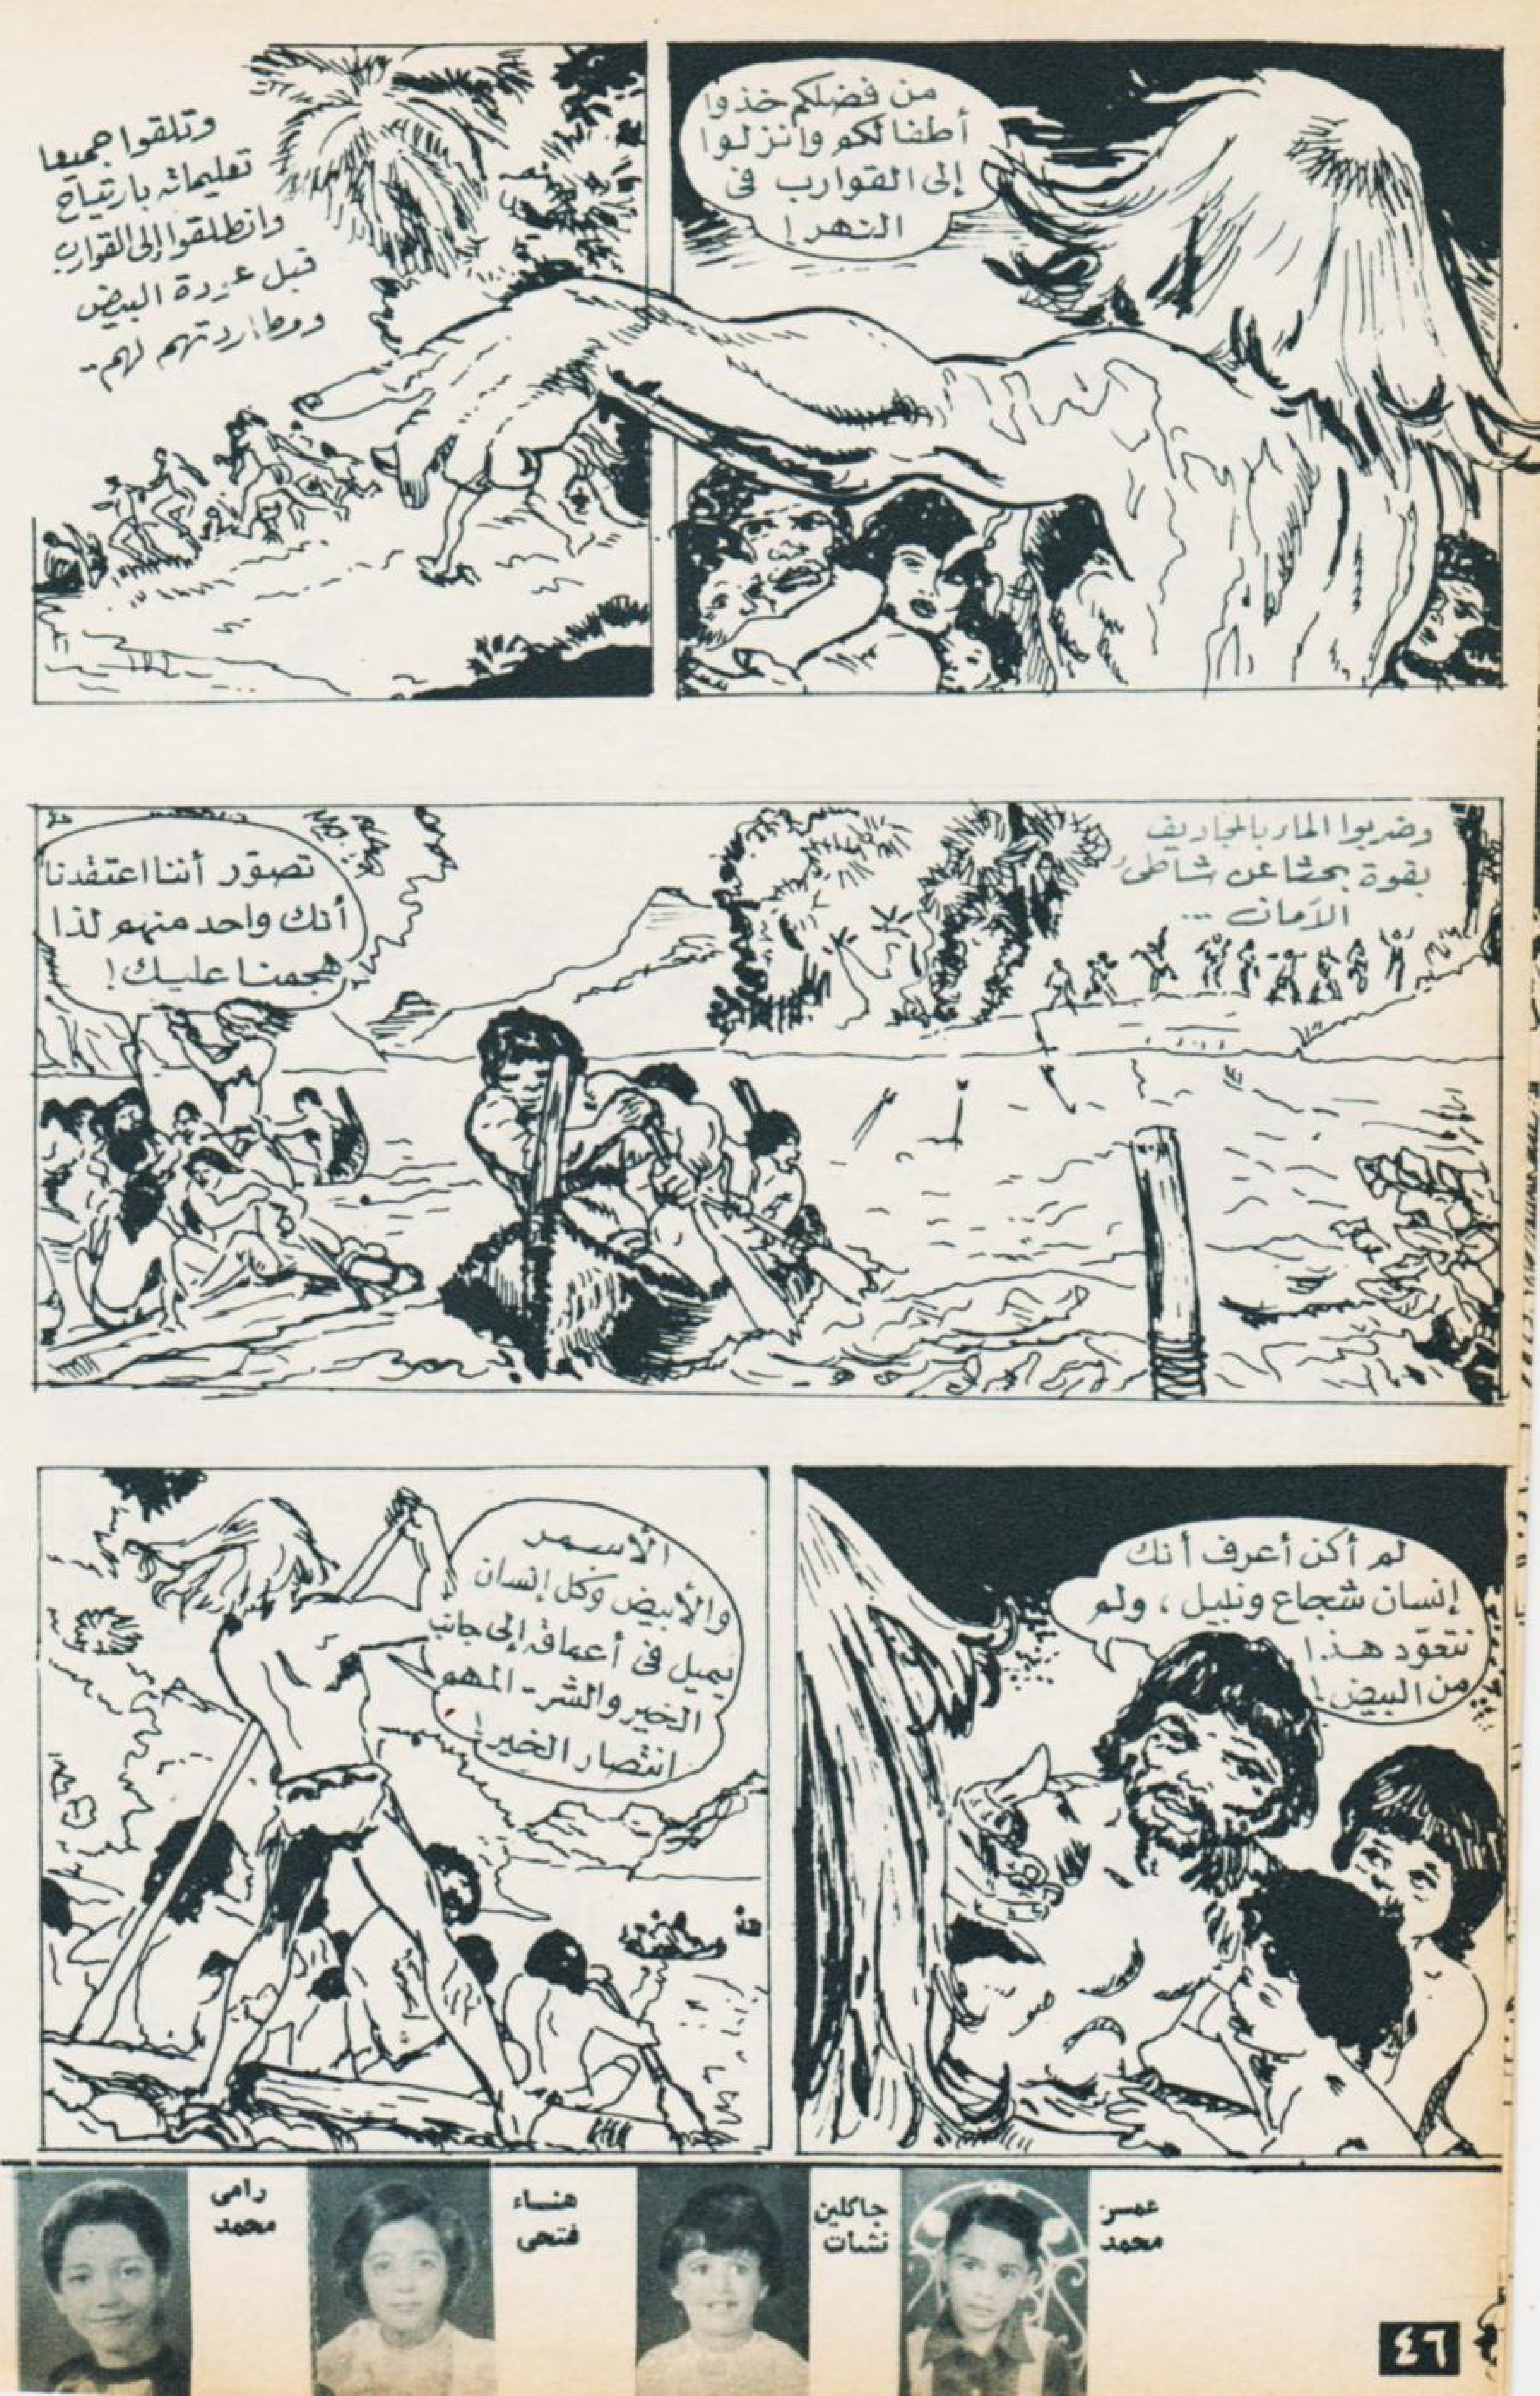 من فضلكم خذوا
أطفالكم وانزلوا
إلى القوارب فى
النهر!
وتلقوا جميعا
تعليماته بارتياح
وانطلقوا إلى القوارب
قبل عودة البيض
ومطاردتهم لهم..
وضربوا الماء بالمجاديف
بقوة بحثا عن شاطئ
الأمان ...
تصوّر أننا اعتقدنا
أنك واحد منهم لذا
هجمنا عليك!
لم أكن أعرف أنك
إنسان شجاع ونبيل، ولم
نتعوّد هذا
من البيض!
الأسمر
والأبيض وكل إنسان
يميل فى أعماقه إلى جانب
الخير والشر - المهم
انتصار الخير!
عمر
محمد
جاكلين
نشات
هناء
فتحى
رامى
محمد
٤٦